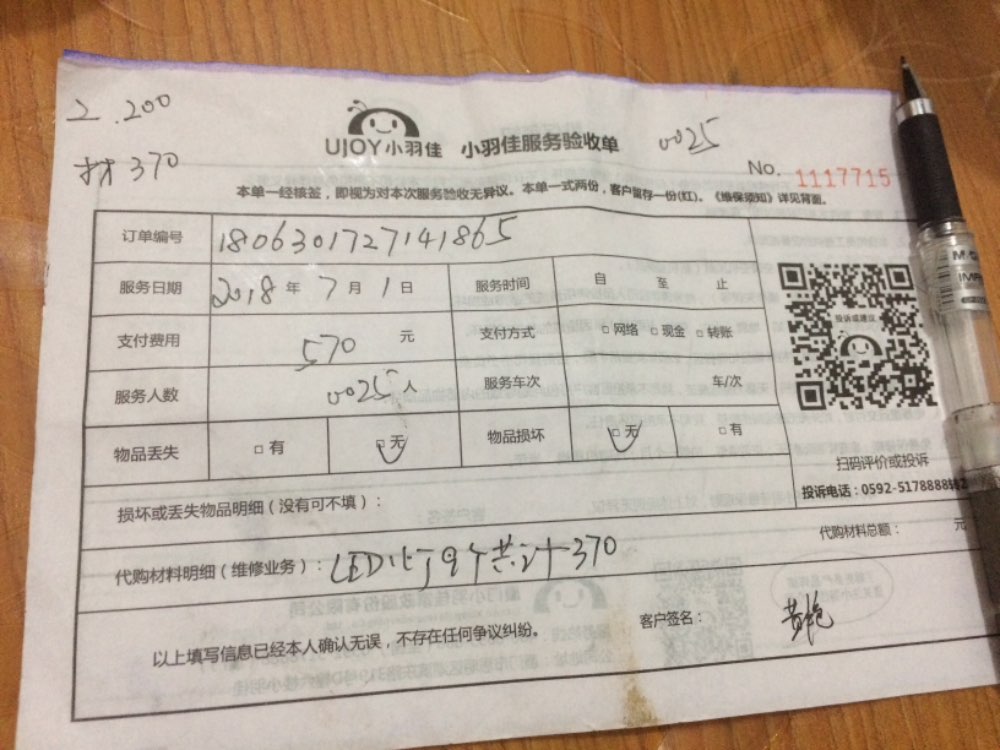 工.200
材370
UJOY小羽佳 小羽佳服务验收单 0025
No. 1117715
本单一经核签，即视为对本次服务验收无异议。本单一式两份，客户留存一份(红)。《维保须知》详见背面。
订单编号 1806301727141865
服务日期 2018年7月1日 服务时间 自 至 止
支付费用 570 元 支付方式 □网络 □现金 □转账
服务人数 0025人 服务车次 车/次
物品丢失 □有 □无 物品损坏 □无 □有
投诉或建议
扫码评价或投诉
投诉电话：0592-5178888
损坏或丢失物品明细（没有可不填）：
代购材料明细（维修业务）：LED灯9个共计370
代购材料总额： 元
以上填写信息已经本人确认无误，不存在任何争议纠纷。
客户签名：